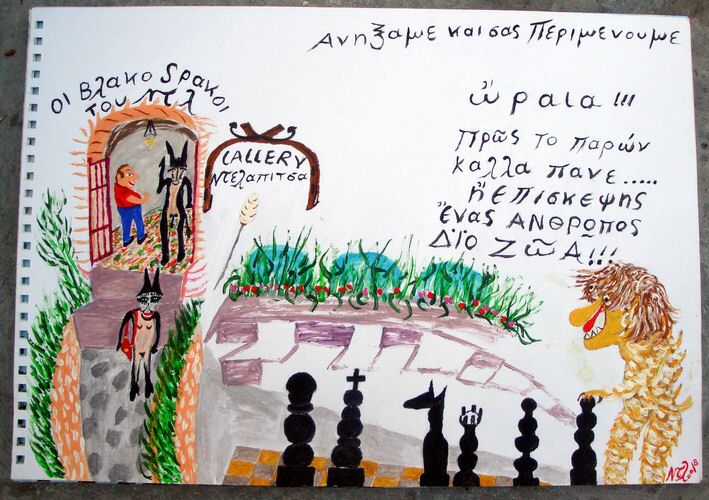 Ανηξαμε και σας Περιμενουμε
Οι Βλακο Sρακοι
του Ντλ
GALLERY
Ντελαπιτσα
ὥραια!!!
Πρὸς το παρὼν
καλλα πανε.....
ἡ Επισκεψης
Ἕνας ΑΝΘΡΩΠΟΣ
Δΐο ΖῶΑ!!!